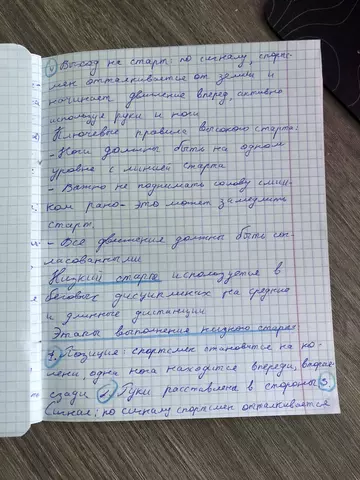 ④ Выход на старт: по сигналу, спортс-
мен отталкивается от земли и
начинает движение вперед, активно
используя руки и ноги
Ключевые правила высокого старта:
- Ноги должны быть на одном
уровне с линией старта
- Важно не поднимать голову слиш-
ком рано - это может замедлить
старт.
- Все движения должны быть сог-
ласованными
Низкий старт используется в
беговых дисциплинах на средние
и длинные дистанции
Этапы выполнения низкого старта
1. Позиция: спортсмен становится на ко-
лени, одна нога находится впереди, вторая
сзади 2. Руки расставлены в стороны 3.
Сигнал: по сигналу спортсмен отталкивается